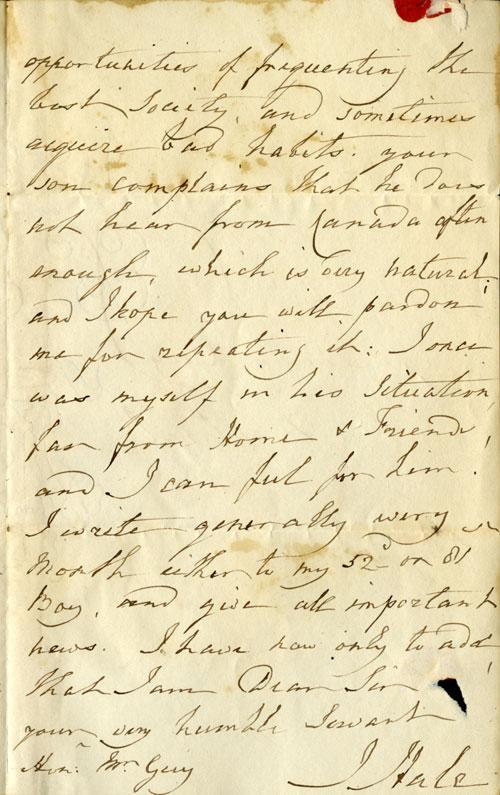 opportunities of frequenting the
best Society, and sometimes
acquire bad habits. your
son complains that he does
not hear from Canada often
enough, which is very natural,
and I hope you will pardon
me for repeating it: I once
was myself in his situation,
far from Home & Friends,
and I can feel for him.
I write generally every
Month either to my 52d or 81
Boy, and give all important
news. I have now only to add,
that I am Dear Sir
your very humble Servant
Hon: Mr Guy J Hale